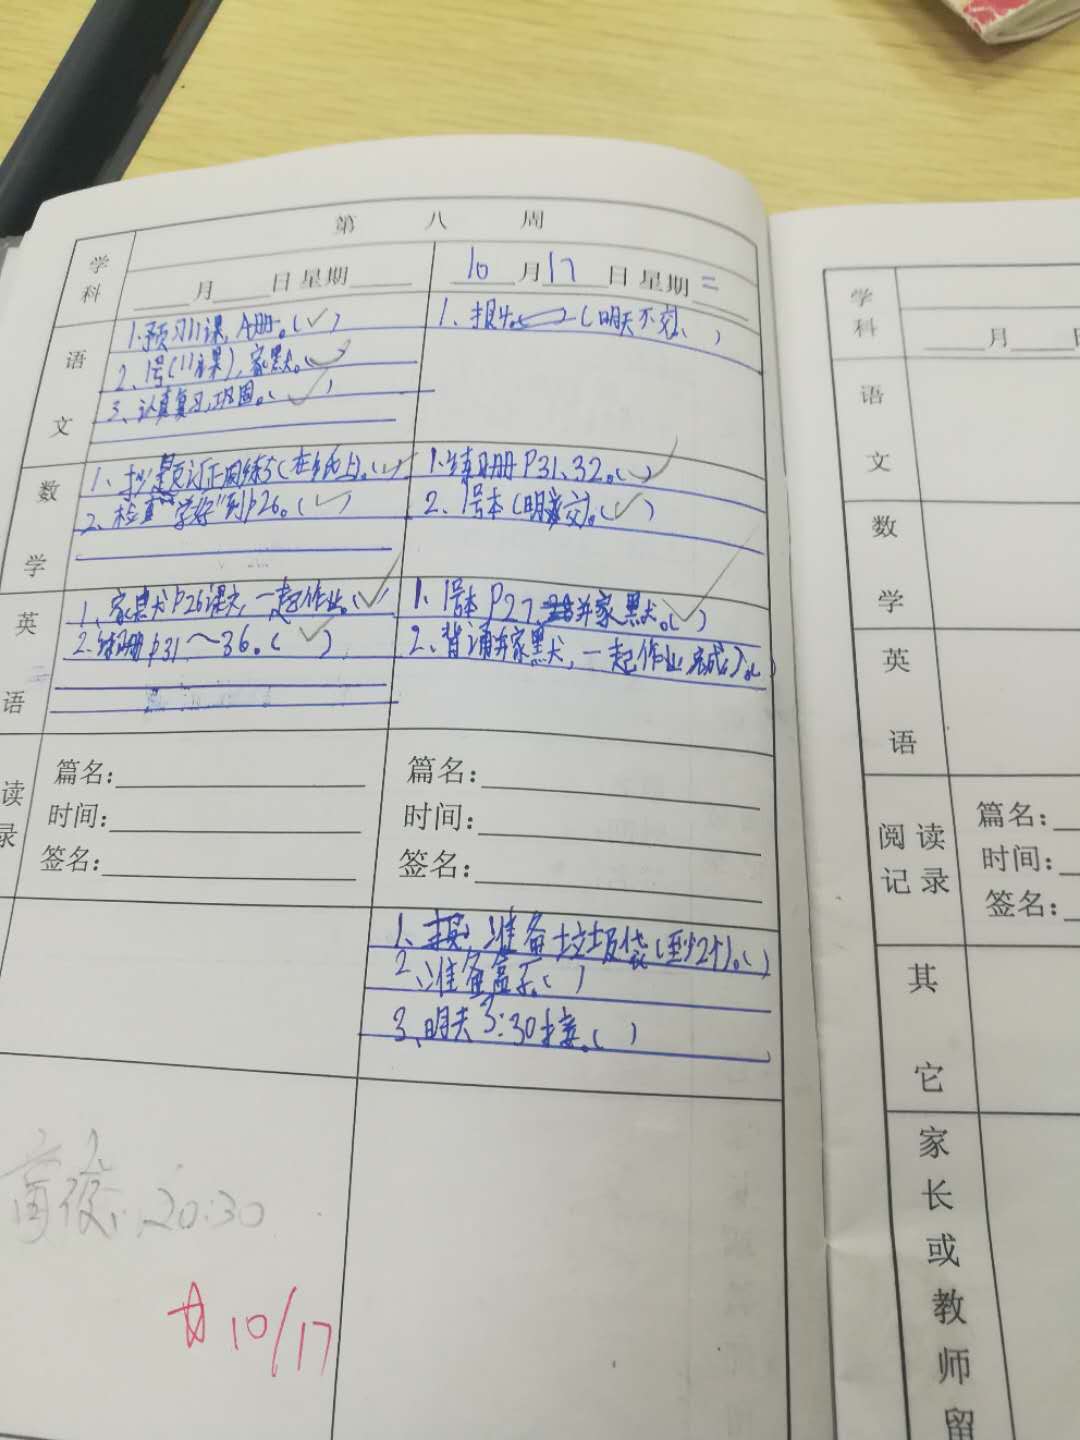 第 八 周
学科
月 日 星期
10 月 17 日 星期 二
语文
1.预习11课,A册。(✓)
2、1号(11课),家默。
3、认真复习,巩固。(✓)
1、报4。(明天不交)
数学
1、抄题订正周练5(在纸上)。(✓)
2、检查"学好"到P26。(✓)
1.练习册P31、32。(✓)
2、1号本(明天交)。(✓)
英语
1、家默P26课文,一起作业。(✓)
2.练习册P31~36。(✓)
1、1号本P27,并家默。(✓)
2、背诵并家默,一起作业完成。( )
读
录
篇名:
时间:
签名:
篇名:
时间:
签名:
1、准备垃圾袋(至少2个)。( )
2、准备盒子。( )
3、明天3:30接。( )
20:30
10/17
学科
月 日
语文
数学
英语
阅读
记录
篇名:
时间:
签名:
其它
家长或教师留